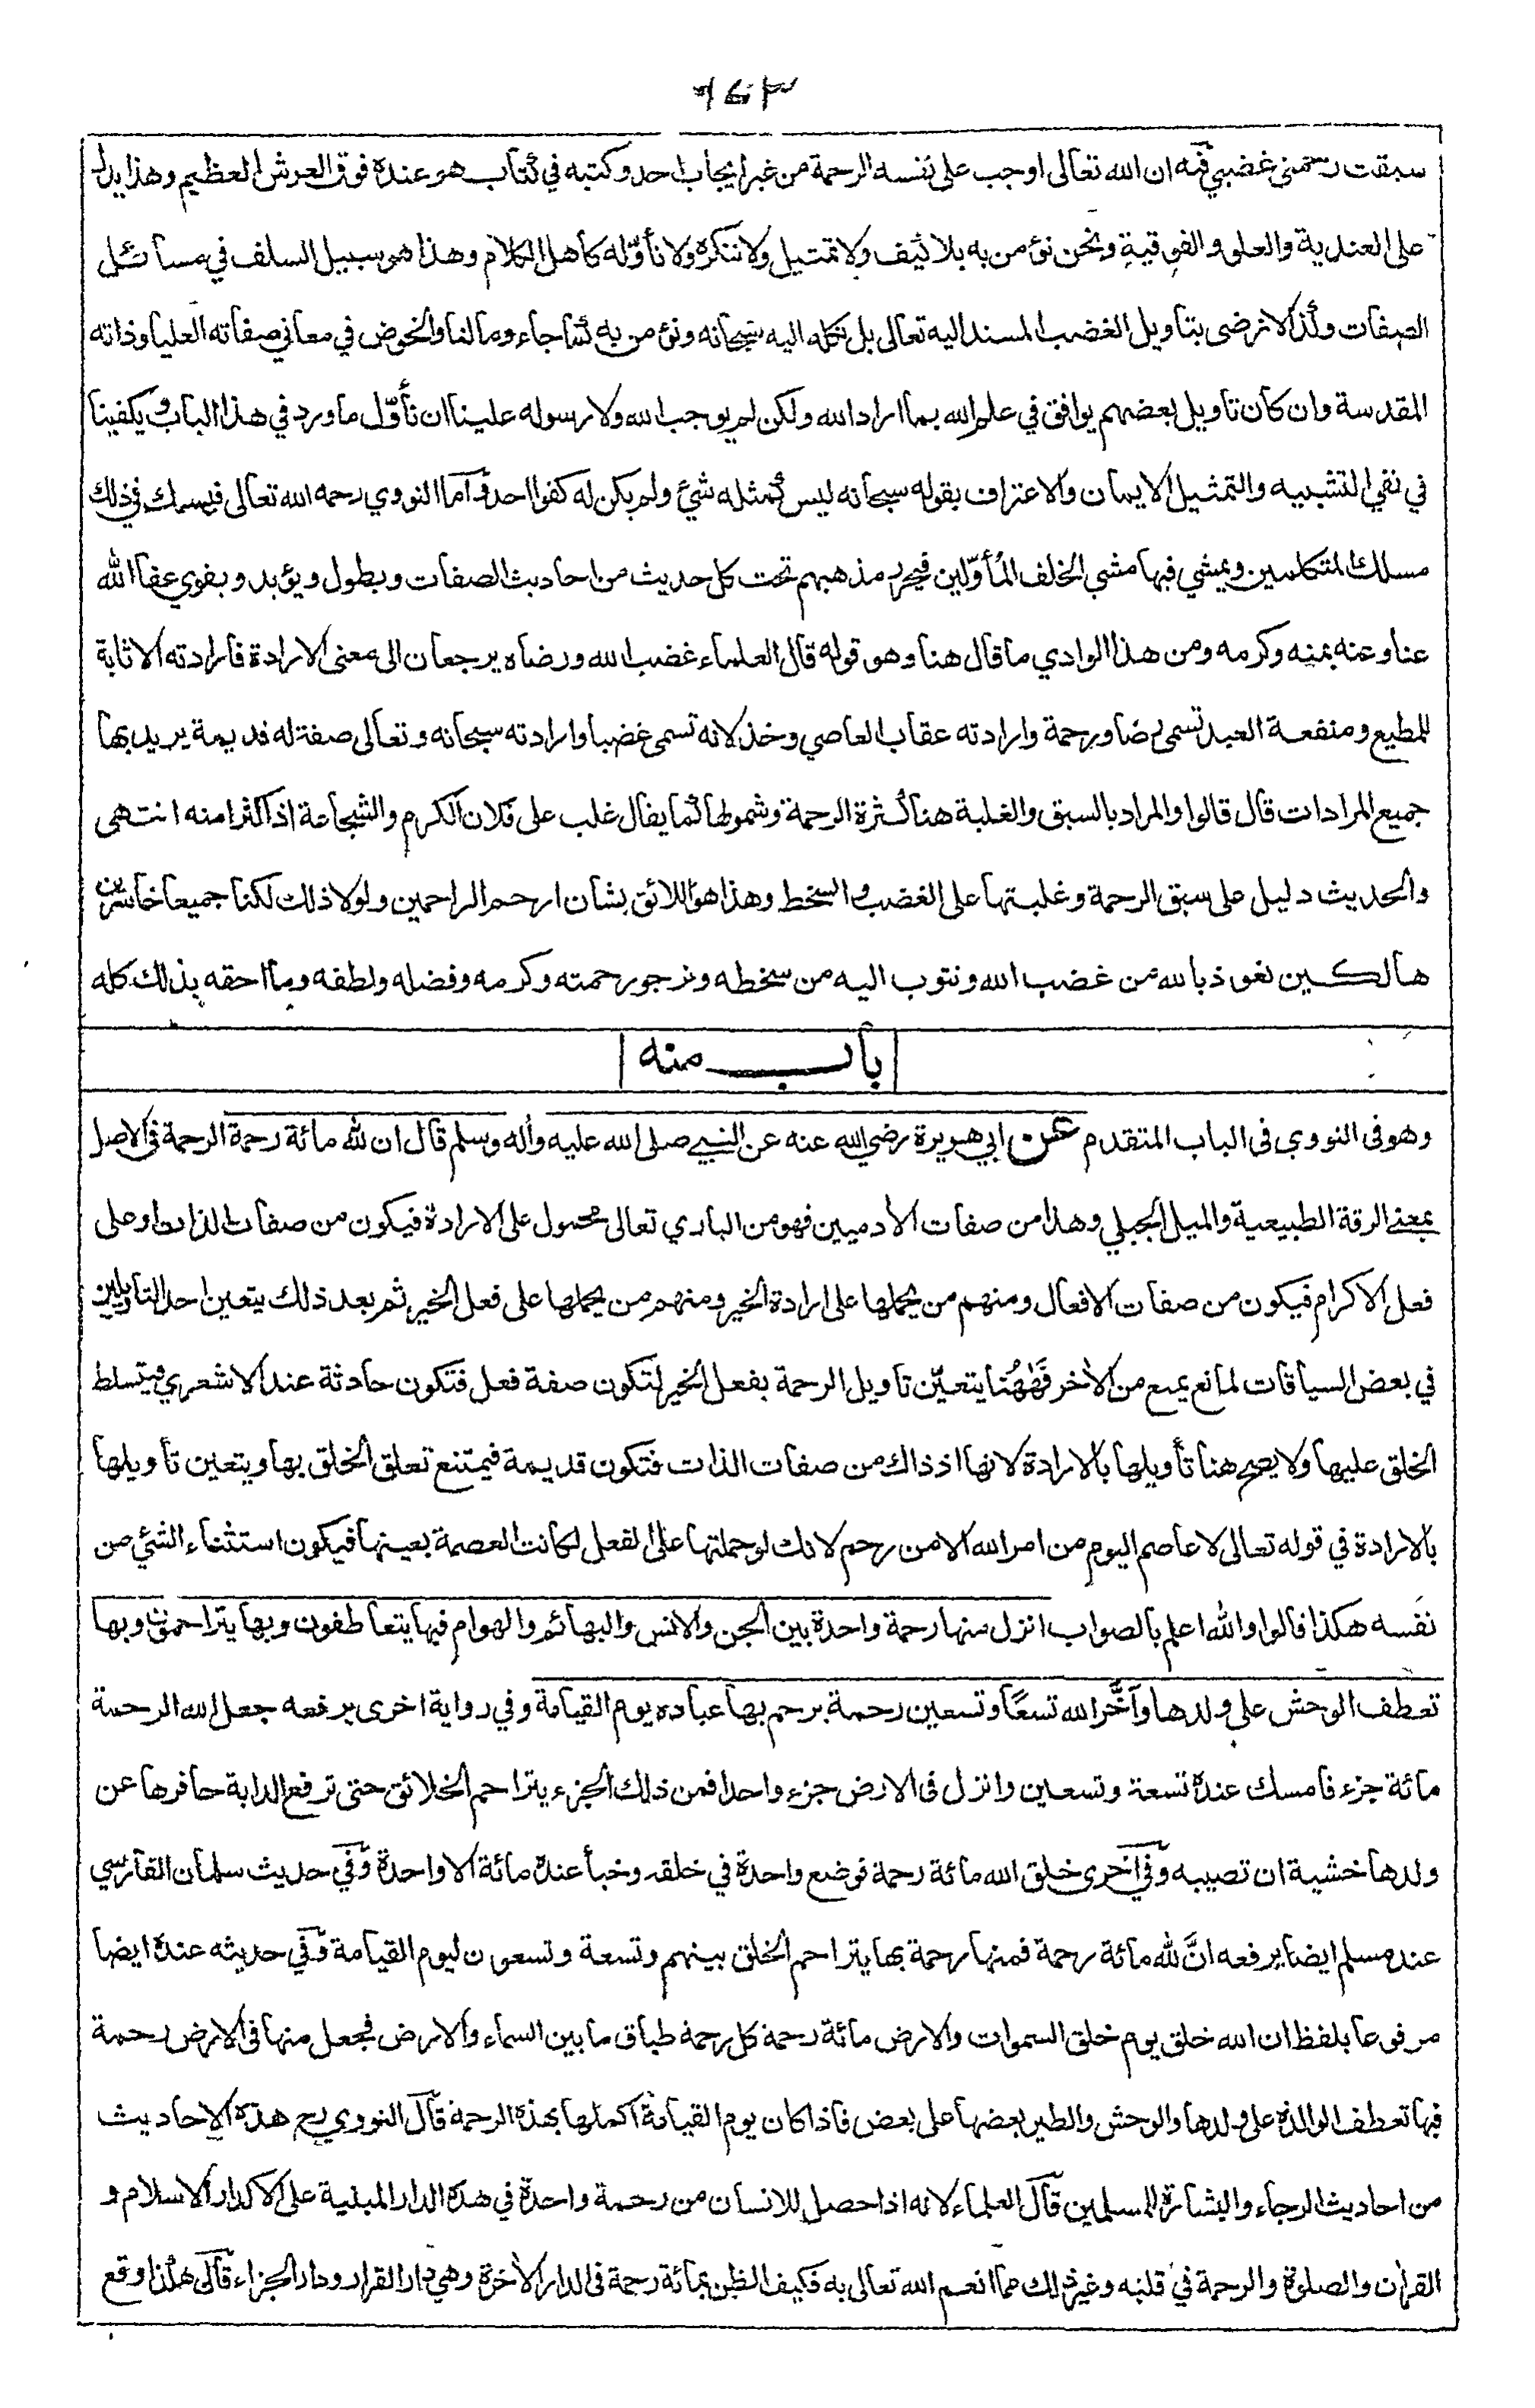 ٦٤٣
سبقت رحمتي غضبي فيه ان الله تعالى اوجب على نفسه الرحمة من غير ايجاب احد وكتبه في كتاب هو عنده فوق العرش العظيم وهذا يدل
على العندية والعلو والفوقية ونحن نؤمن به بلا كيف ولا تمثيل ولا ننكره ولا نأوّله كأهل الكلام وهذا هو سبيل السلف في مسائل
الصفات ولذا لا نرضى بتأويل الغضب المسند اليه تعالى بل نكله اليه سبحانه ونؤمن به كما جاء وما لنا والخوض في معاني صفاته العليا وذاته
المقدسة وان كان تاويل بعضهم يوافق في علم الله بما اراد الله ولكن لم يوجب الله ولا رسوله علينا ان نأوّل ما ورد في هذا الباب ويكفينا
في نفي التشبيه والتمثيل الايمان والاعتراف بقوله سبحانه ليس كمثله شئ ولم يكن له كفوا احد واما النووي رحمه الله تعالى فيسلك في ذلك
مسلك المتكلمين ويمشي فيها مشي الخلف المأوّلين فيحرر مذهبهم تحت كل حديث من احاديث الصفات ويطول ويؤيد ويقوي عفا الله
عنا وعنه بمنه وكرمه ومن هذا الوادي ما قال هنا وهو قوله قال العلماء غضب الله ورضاه يرجعان الى معنى الارادة فارادته الاثابة
للمطيع ومنفعة العبد تسمى رضا ورحمة وارادته عقاب العاصي وخذلانه تسمى غضبا وارادته سبحانه وتعالى صفة له قديمة يريد بها
جميع المرادات قال قالوا والمراد بالسبق والغلبة هنا كثرة الرحمة وشمولها كما يقال غلب على فلان الكرم والشجاعة اذا اكثرا منه انتهى
والحديث دليل على سبق الرحمة وغلبتها على الغضب والسخط وهذا هو اللائق بشان ارحم الراحمين ولولا ذلك لكنا جميعا خاسرين
هالكين نعوذ بالله من غضب الله ونتوب اليه من سخطه ونرجو رحمته وكرمه وفضله ولطفه وما احقه بذلك كله
باب منه
وهو في النووي في الباب المتقدم عن ابي هريرة رضي الله عنه عن النبي صلى الله عليه وأله وسلم قال ان لله مائة رحمة الرحمة في الاصل
بمعنى الرقة الطبيعية والميل الجبلي وهذا من صفات الأدميين فهو من الباري تعالى محمول على الارادة فيكون من صفات الذات او على
فعل الاكرام فيكون من صفات الافعال ومنهم من يحملها على ارادة الخير ومنهم من يحملها على فعل الخير ثم بعد ذلك يتعين احد التأويلين
في بعض السياقات لمانع يمنع من الأخر فههُنا يتعيّن تاويل الرحمة بفعل الخير لتكون صفة فعل فتكون حادثة عند الاشعري فيتسلط
الخلق عليها ولا يصح هنا تأويلها بالارادة لانها اذ ذاك من صفات الذات فتكون قديمة فيمتنع تعلق الخلق بها ويتعين تأويلها
بالارادة في قوله تعالى لا عاصم اليوم من امر الله الا من رحم لانك لو حملتها على الفعل لكانت العصمة بعينها فيكون استثناء الشئ من
نفسه هكذا قالوا والله اعلم بالصواب انزل منها رحمة واحدة بين الجن والانس والبهائم والهوام فبها يتعاطفون وبها يتراحمون وبها
تعطف الوحش على ولدها وأخَّر الله تسعًا وتسعين رحمة يرحم بها عباده يوم القيامة وفي رواية اخرى يرفعه جعل الله الرحمة
مائة جزء فامسك عنده تسعة وتسعين وانزل في الارض جزء واحدا فمن ذلك الجزء يتراحم الخلائق حتى ترفع الدابة حافرها عن
ولدها خشية ان تصيبه وفي اخرى خلق الله مائة رحمة فوضع واحدة في خلقه وخبأ عنده مائة الا واحدة وفي حديث سلمان الفارسي
عند مسلم ايضا يرفعه انَّ لله مائة رحمة فمنها رحمة بها يتراحم الخلق بينهم وتسعة وتسعون ليوم القيامة وفي حديثه عنده ايضا
مرفوعا بلفظ ان الله خلق يوم خلق السموات والارض مائة رحمة كل رحمة طباق ما بين السماء والارض فجعل منها في الارض رحمة
فبها تعطف الوالدة على ولدها والوحش والطير بعضها على بعض فاذا كان يوم القيامة اكملها بهذه الرحمة قال النووي رح هذه الاحاديث
من احاديث الرجاء والبشارة للمسلمين قال العلماء لانه اذا حصل للانسان من رحمة واحدة في هذه الدار المبنية على الاكدار الاسلام و
القرأن والصلوة والرحمة في قلبه وغير ذلك مما انعم الله تعالى به فكيف الظن بمائة رحمة في الدار الأخرة وهي دار القرار ودار الجزاء قال هكذا وقع